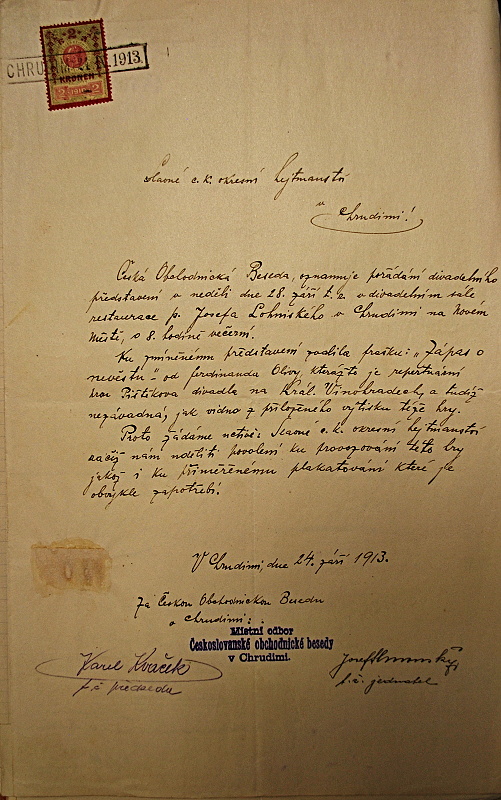 CHRU 1913.
2
KRONEN
2 2
Slavné c.k. okresní hejtmanství
v
Chrudimi!
Česká Obchodnická Beseda, oznamuje pořádání divadelního
představení v neděli dne 28. září t.r. v divadelním sále
restaurace p. Josefa Lohniského v Chrudimi na Novém
městě, o 8. hodině večerní.
Ku zmíněnému představení zadala frašku: "Zápas o
nevěstu" od Ferdinanda Olivy, kterážto je repertoirní
hrou Pištěkova divadla na Král. Vinohradech, a tudíž
nezávadná, jak vidno z přiloženého výtisku téže hry.
Proto žádáme uctivě: Slavné c.k. okresní hejtmanství
račiž nám uděliti povolení ku provozování této hry
jakož i ku přiměřenému plakátování které je
obvykle zapotřebí.
V Chrudimi, dne 24. září 1913.
Za Českou Obchodnickou Besedu
v Chrudimi:
Místní odbor
Českoslovanské obchodnické besedy
v Chrudimi.
Karel Kvaček
t.č. předseda
Josef
t.č. jednatel